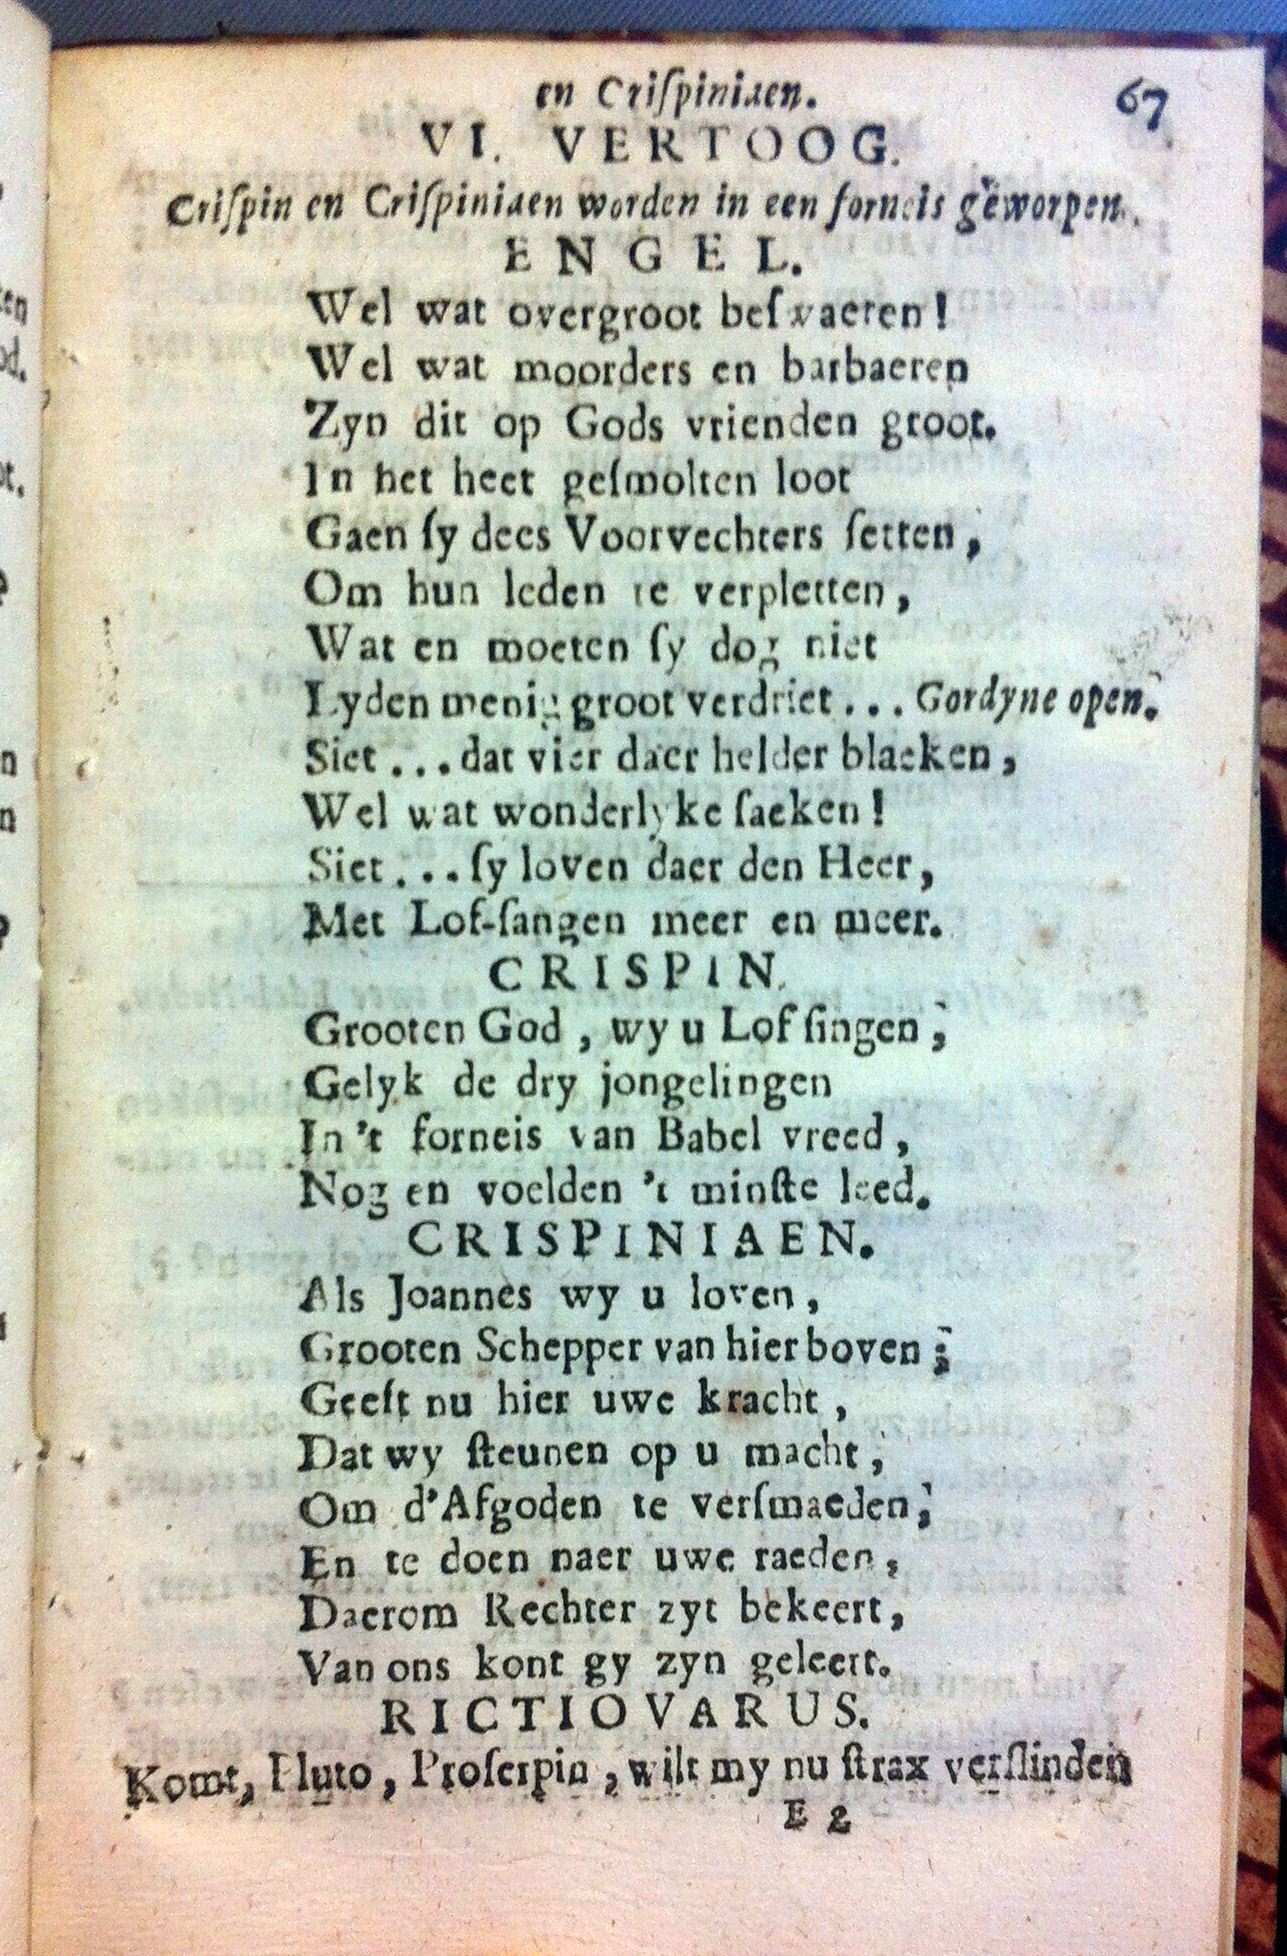 en Criſpiniaen. 67
VI. VERTOOG.
Criſpin en Criſpiniaen worden in een forneis geworpen.
ENGEL.
Wel wat overgroot beſwaeren!
Wel wat moorders en barbaeren
Zyn dit op Gods vrienden groot.
In het heet geſmolten loot
Gaen ſy dees Voorvechters ſetten,
Om hun leden te verpletten,
Wat en moeten ſy dog niet
Lyden menig groot verdriet... Gordyne open.
Siet... dat vier daer helder blaeken,
Wel wat wonderlyke ſaeken!
Siet... ſy loven daer den Heer,
Met Lof-ſangen meer en meer.
CRISPIN.
Grooten God, wy u Lof ſingen;
Gelyk de dry jongelingen
In 't forneis van Babel vreed,
Nog en voelden 't minſte leed.
CRISPINIAEN.
Als Joannes wy u loven,
Grooten Schepper van hier boven;
Geeft nu hier uwe kracht,
Dat wy ſteunen op u macht,
Om d'Afgoden te verſmaeden;
En te doen naer uwe raeden,
Daerom Rechter zyt bekeert,
Van ons kont gy zyn geleert.
RICTIOVARUS.
Komt, Pluto, Proſerpin, wilt my nu ſtrax verſlinden
E 2